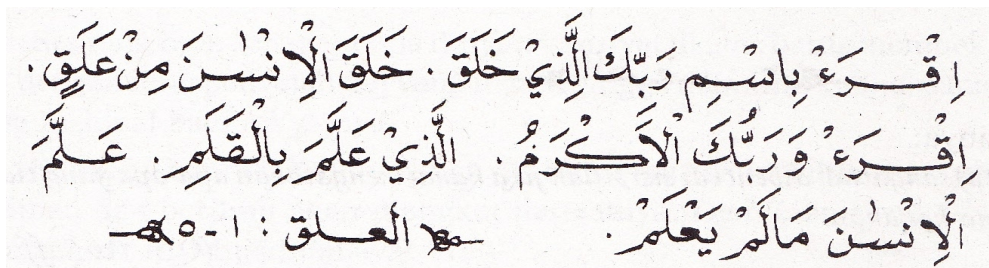 اِقْرَءْ بِاسْمِ رَبِّكَ الَّذِيْ خَلَقَ . خَلَقَ الْاِنْسٰنَ مِنْ عَلَقٍ .
اِقْرَءْ وَرَبُّكَ الْاَكْرَمُ . الَّذِىْ عَلَّمَ بِالْقَلَمِ . عَلَّمَ
الْاِنْسٰنَ مَالَمْ يَعْلَمْ . العلق : ١-٥